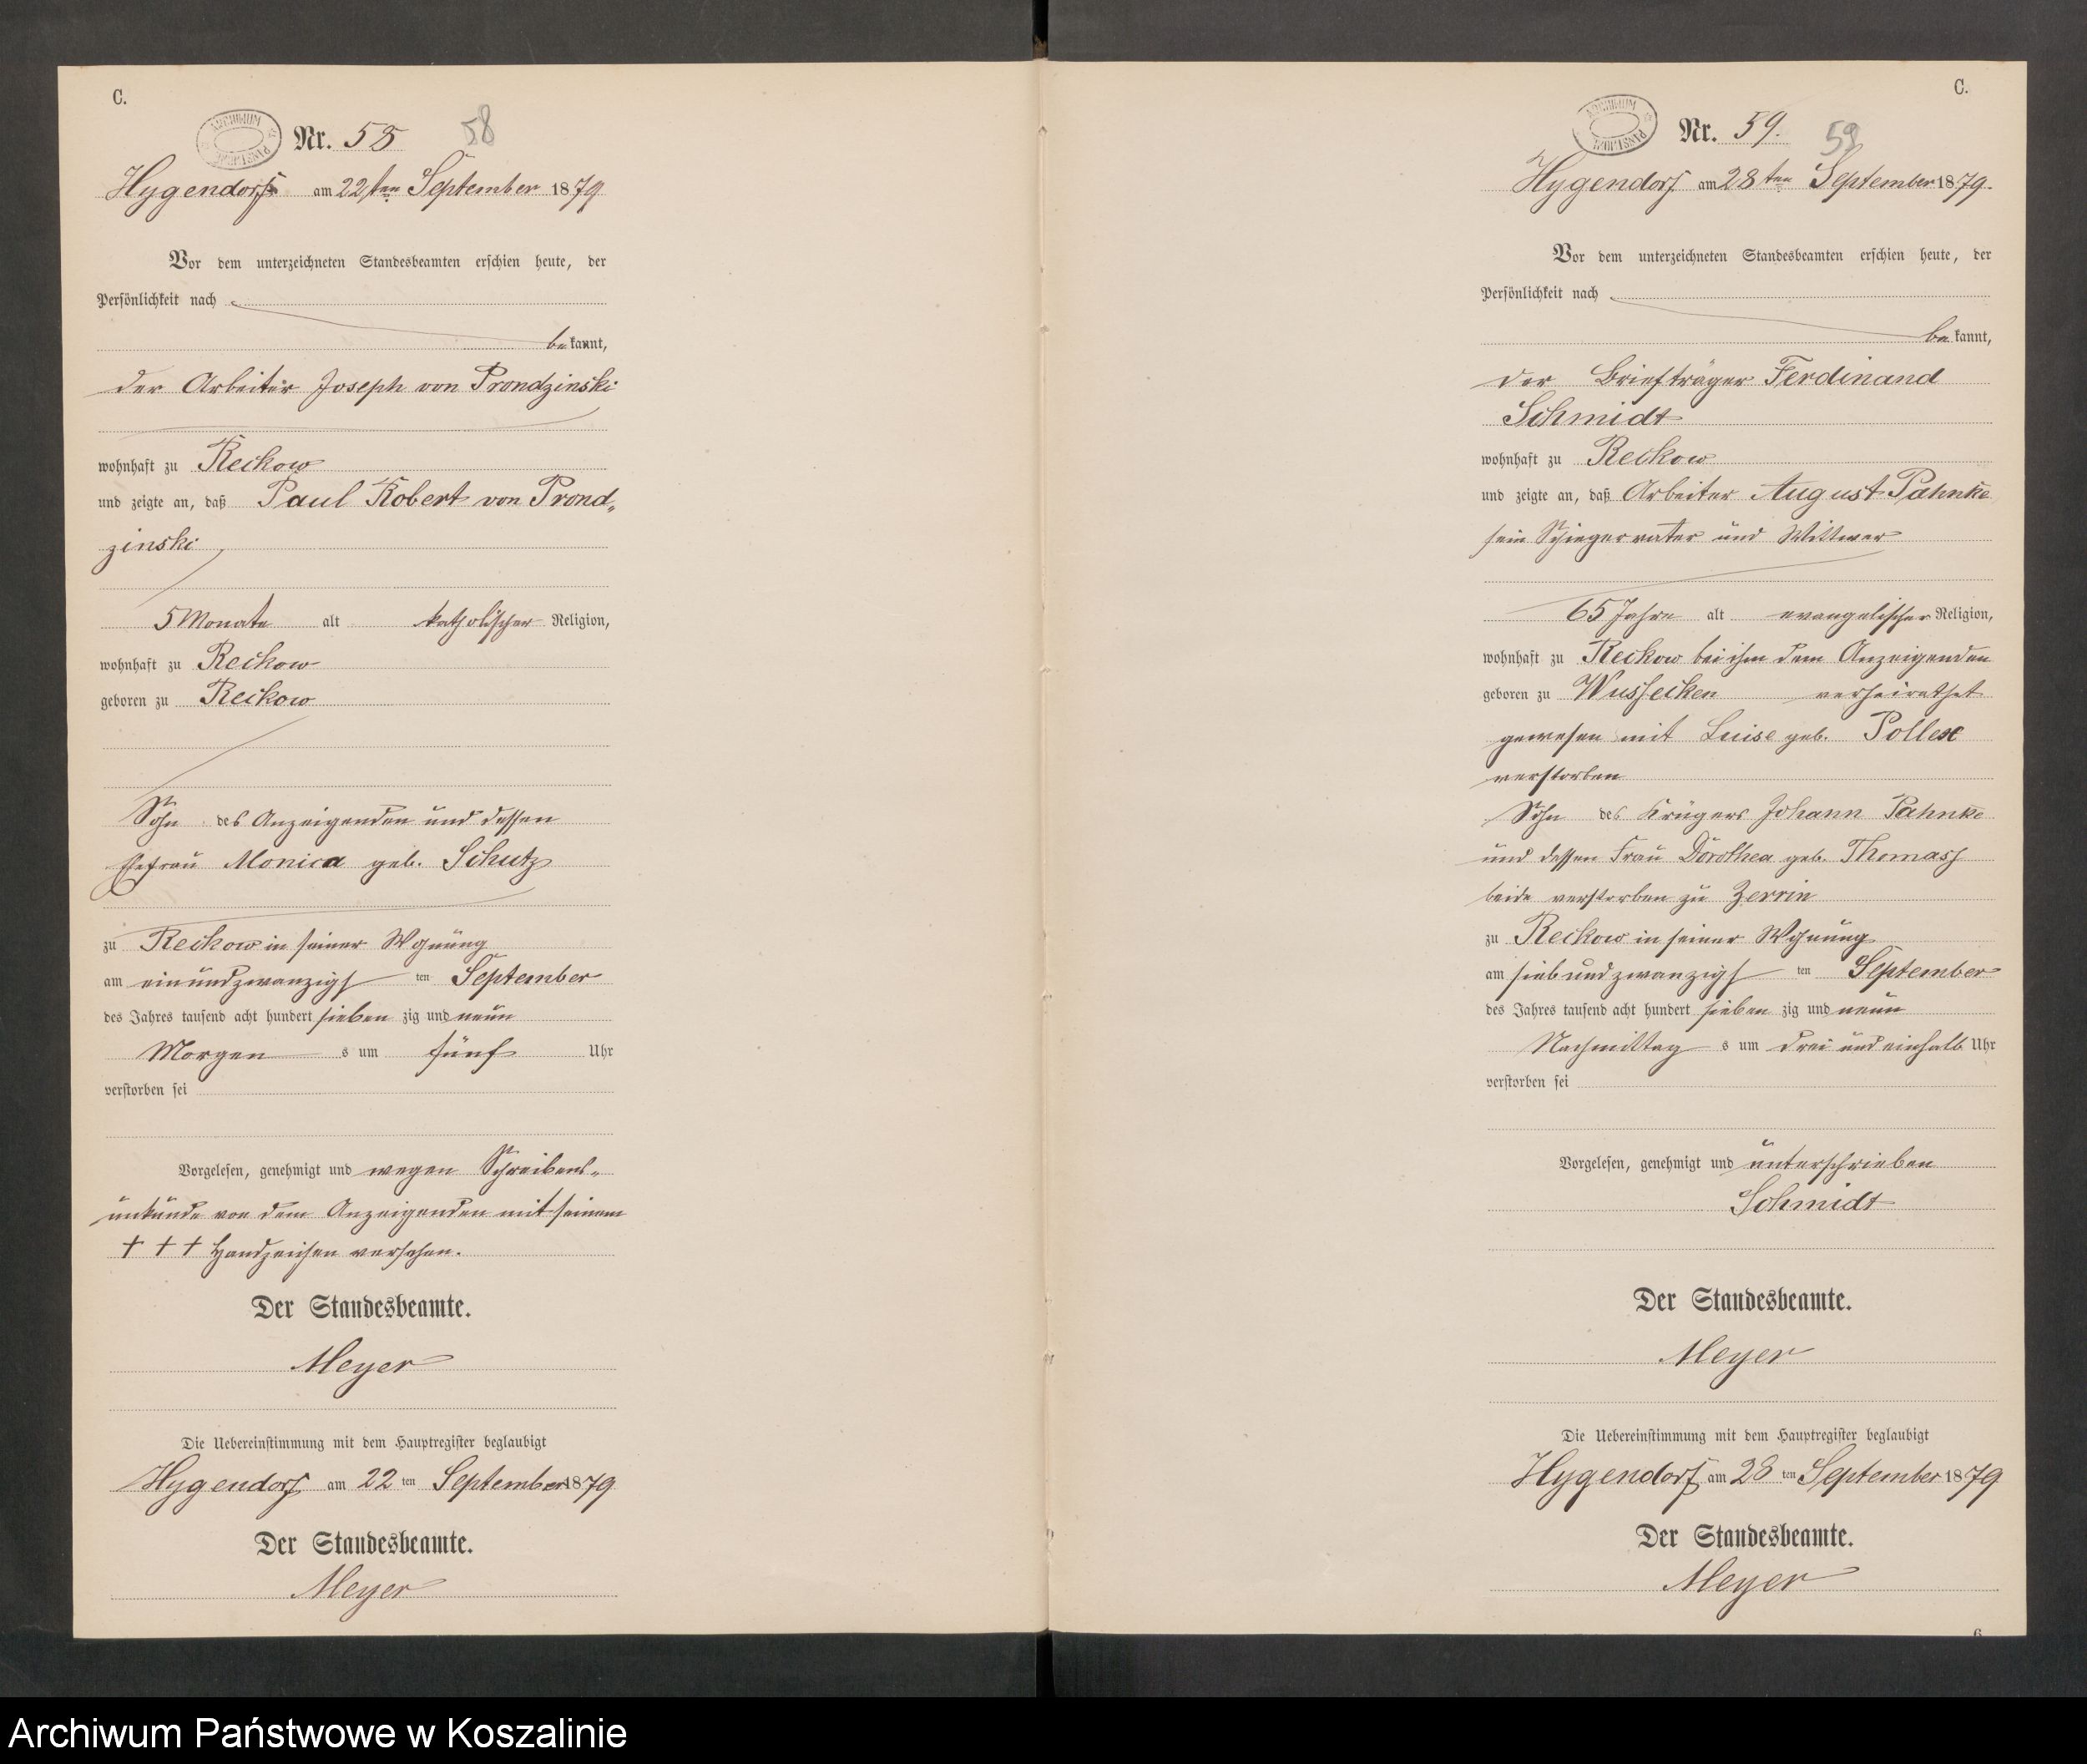 C.
ARCHIWUM PAŃSTWOWE
Nr. 58 58
Hygendorf am 22ten September 1879
Vor dem unterzeichneten Standesbeamten erschien heute, der
Persönlichkeit nach
bekannt,
der Arbeiter Joseph von Prondzinski
wohnhaft zu Reckow
und zeigte an, daß Paul Robert von Prond„
zinski
5 Monate alt katholischer Religion,
wohnhaft zu Reckow
geboren zu Reckow
Sohn des Anzeigenden und dessen
Ehefrau Monica geb. Schutz
zu Reckow in seiner Wohnung
am einundzwanzigsten September
des Jahres tausend acht hundert siebenzig und neun
Morgens um fünf Uhr
verstorben sei
Vorgelesen, genehmigt und wegen Schreibens„
unkunde von dem Anzeigenden mit seinem
+ + + Handzeichen versehen.
Der Standesbeamte.
Meyer
Die Uebereinstimmung mit dem Hauptregister beglaubigt
Hygendorf am 22ten September 1879
Der Standesbeamte.
Meyer
C.
ARCHIWUM PAŃSTWOWE
Nr. 59. 59
Hygendorf am 28ten September 1879.
Vor dem unterzeichneten Standesbeamten erschien heute, der
Persönlichkeit nach
bekannt,
der Briefträger Ferdinand
Schmidt
wohnhaft zu Reckow
und zeigte an, daß Arbeiter August Pahnke
sein Schwiegervater und Wittwer
65 Jahre alt evangelischer Religion,
wohnhaft zu Reckow bei ihm dem Anzeigenden
geboren zu Wussecken verheirathet
gewesen mit Luise geb. Pollex
verstorben
Sohn des Krügers Johann Pahnke
und dessen Frau Dorothea geb. Thomass
beide verstorben zu Zerrin
zu Reckow in seiner Wohnung
am siebundzwanzigsten September
des Jahres tausend acht hundert siebenzig und neun
Nachmittags um drei und einhalb Uhr
verstorben sei
Vorgelesen, genehmigt und unterschrieben
Schmidt
Der Standesbeamte.
Meyer
Die Uebereinstimmung mit dem Hauptregister beglaubigt
Hygendorf am 28ten September 1879
Der Standesbeamte.
Meyer
6
Archiwum Państwowe w Koszalinie